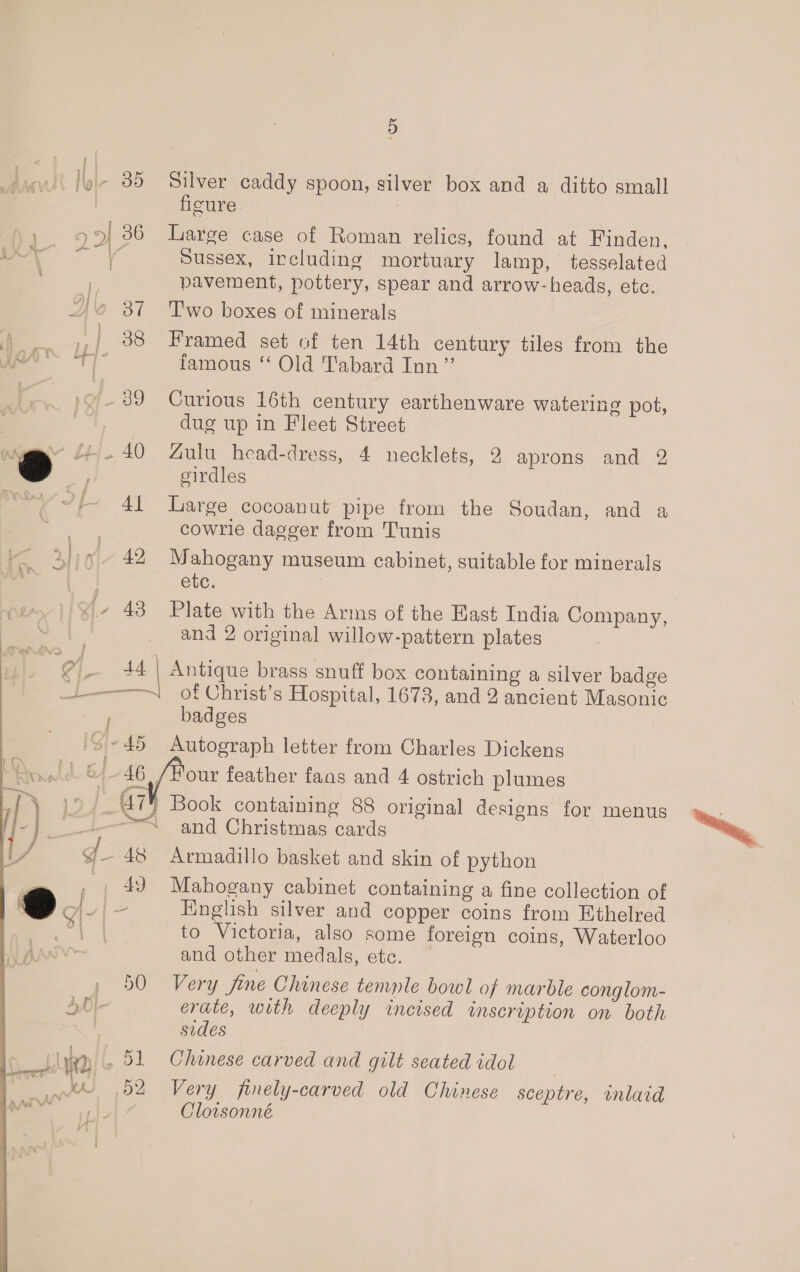 5
35 Silver caddy spoon, silver box and a ditto small
figure
36 Large case of Roman relics, found at Finden,
Sussex, including mortuary lamp, tesselated
pavement, pottery, spear and arrow-heads, etc.
37 Two boxes of minerals
38 Framed set of ten 14th century tiles from the
famous “ Old Tabard Inn ”
39 Curious 16th century earthenware watering pot,
dug up in Fleet Street
40 Zulu head-dress, 4 necklets, 2 aprons and 2
girdles
41 Large cocoanut pipe from the Soudan, and a
cowrie dagger from Tunis
42 Mahogany museum cabinet, suitable for minerals
etc.
43 Plate with the Arms of the East India Company,
and 2 original willow-pattern plates
44 Antique brass snuff box containing a silver badge
of Christ’s Hospital, 1673, and 2 ancient Masonic
badges
45 Autograph letter from Charles Dickens
46 Four feather fans and 4 ostrich plumes
47 Book containing 88 original designs for menus
and Christmas cards
48 Armadillo basket and skin of python
49 Mahogany cabinet containing a fine collection of
English silver and copper coins from Ethelred
to Victoria, also some foreign coins, Waterloo
and other medals, etc.
50 Very fine Chinese temple bowl of marble conglom-
erate, with deeply incised inscription on both
sides
51 Chinese carved and gilt seated idol
52 Very finely-carved old Chinese sceptre, inlaid
Cloisonné